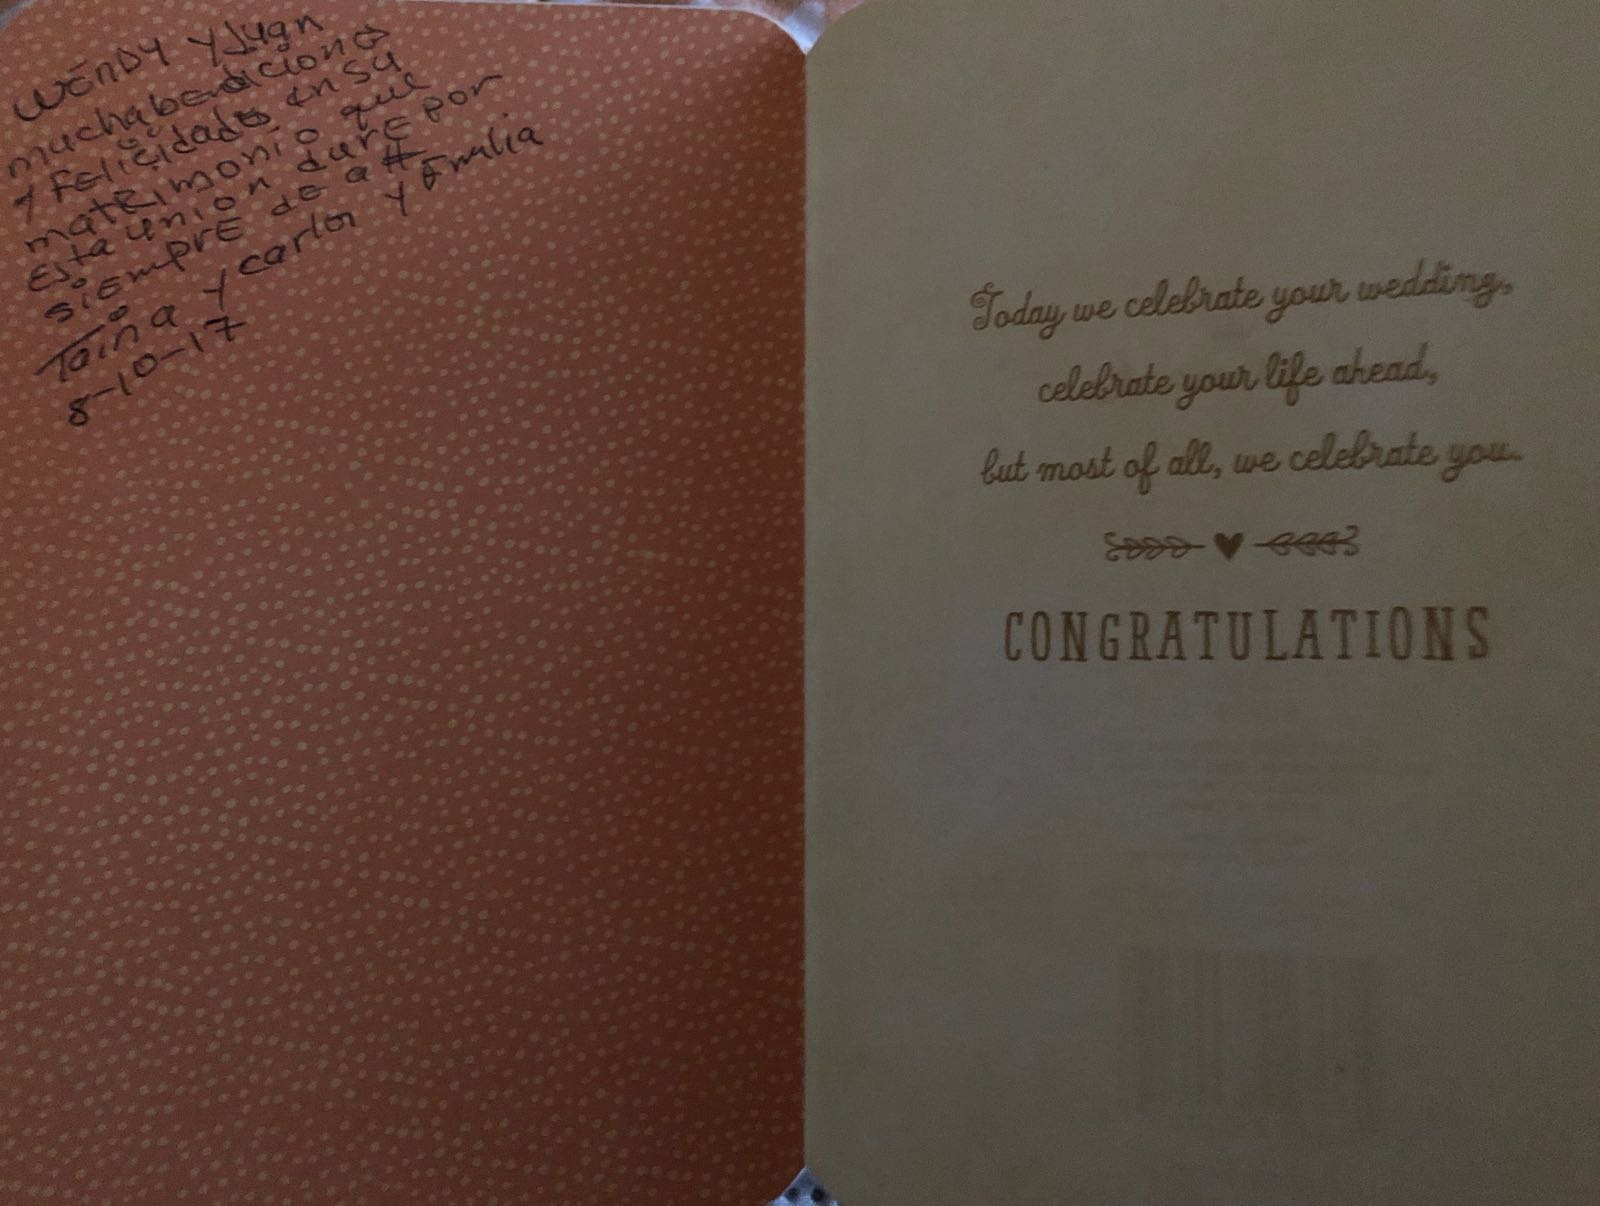 WENDY Y JUAN
muchabendiciones
y FELicidades En Su
matRimonio que
Esta union durE por
siEmprE dE a #
Taina y carlos y Emilia
8-10-17
Today we celebrate your wedding,
celebrate your life ahead,
but most of all, we celebrate you.
CONGRATULATIONS